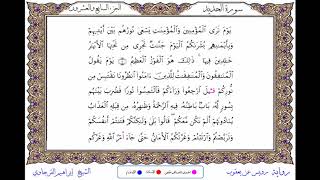 سورة الحديد
الجزء السابع والعشرون
يَوْمَ تَرَى ٱلْمُؤْمِنِينَ وَٱلْمُؤْمِنَٰتِ يَسْعَىٰ نُورُهُم بَيْنَ أَيْدِيهِمْ
وَبِأَيْمَٰنِهِم بُشْرَىٰكُمُ ٱلْيَوْمَ جَنَّٰتٌ تَجْرِى مِن تَحْتِهَا ٱلْأَنْهَٰرُ
خَٰلِدِينَ فِيهَا ذَٰلِكَ هُوَ ٱلْفَوْزُ ٱلْعَظِيمُ يَوْمَ يَقُولُ
ٱلْمُنَٰفِقُونَ وَٱلْمُنَٰفِقَٰتُ لِلَّذِينَ ءَامَنُوا ٱنظُرُونَا نَقْتَبِسْ مِن
نُّورِكُمْ قِيلَ ٱرْجِعُوا وَرَآءَكُمْ فَٱلْتَمِسُوا نُورًا فَضُرِبَ بَيْنَهُم
بِسُورٍ لَّهُۥ بَابٌۢ بَاطِنُهُۥ فِيهِ ٱلرَّحْمَةُ وَظَٰهِرُهُۥ مِن قِبَلِهِ ٱلْعَذَابُ
يُنَادُونَهُمْ أَلَمْ نَكُن مَّعَكُمْ قَالُوا بَلَىٰ وَلَٰكِنَّكُمْ فَتَنتُمْ أَنفُسَكُمْ
وَتَرَبَّصْتُمْ وَٱرْتَبْتُمْ وَغَرَّتْكُمُ ٱلْأَمَانِىُّ حَتَّىٰ جَآءَ أَمْرُ ٱللَّهِ وَغَرَّكُم
رواية رويس عن يعقوب
الشيخ إبراهيم الفرجاوي